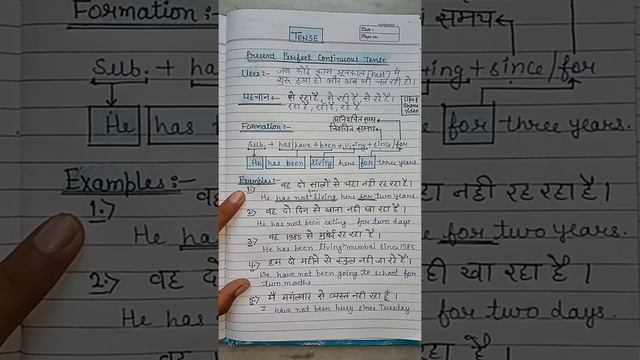 TENSE
Date :
Page no.
Present Perfect Continuous Tense
Uses:- जब कोई काम भूतकाल (Past) में
शुरू हुआ हो और अब भी चल रही हो।
पहचान:- से रहा है, से रही है, से रहे है।
रहा है, रही है, रहे है
Formation:-
अनिश्चित समय
निश्चित समय
Sub. + has/have + been + V1+ing + since/for
He has been living here for three years.
Examples:-
1:) वह दो सालों से यहां नहीं रह रहा है।
He has not living here for two years.
2:) वह दो दिन से खाना नहीं खा रहा है।
He has not been eating for two days.
3:) वह 1985 से मुंबई रह रहा है।
He has been living mumbai since 1985
4:) हम दो महीने से स्कूल नहीं जा रहे हैं।
We have not been going to school for
two months
5:) मैं मंगलवार से व्यस्त नहीं रहा हूँ।
I have not been busy since Tuesday.
Formation:-
Sub. + ha
He has
Examples:-
1:)
वह
He ha
2:) वह दो
He has
समय
+ing + since/for
for three years.
नहीं रह रहा है।
for two years.
हीं खा रहा है।
for two days.
है।